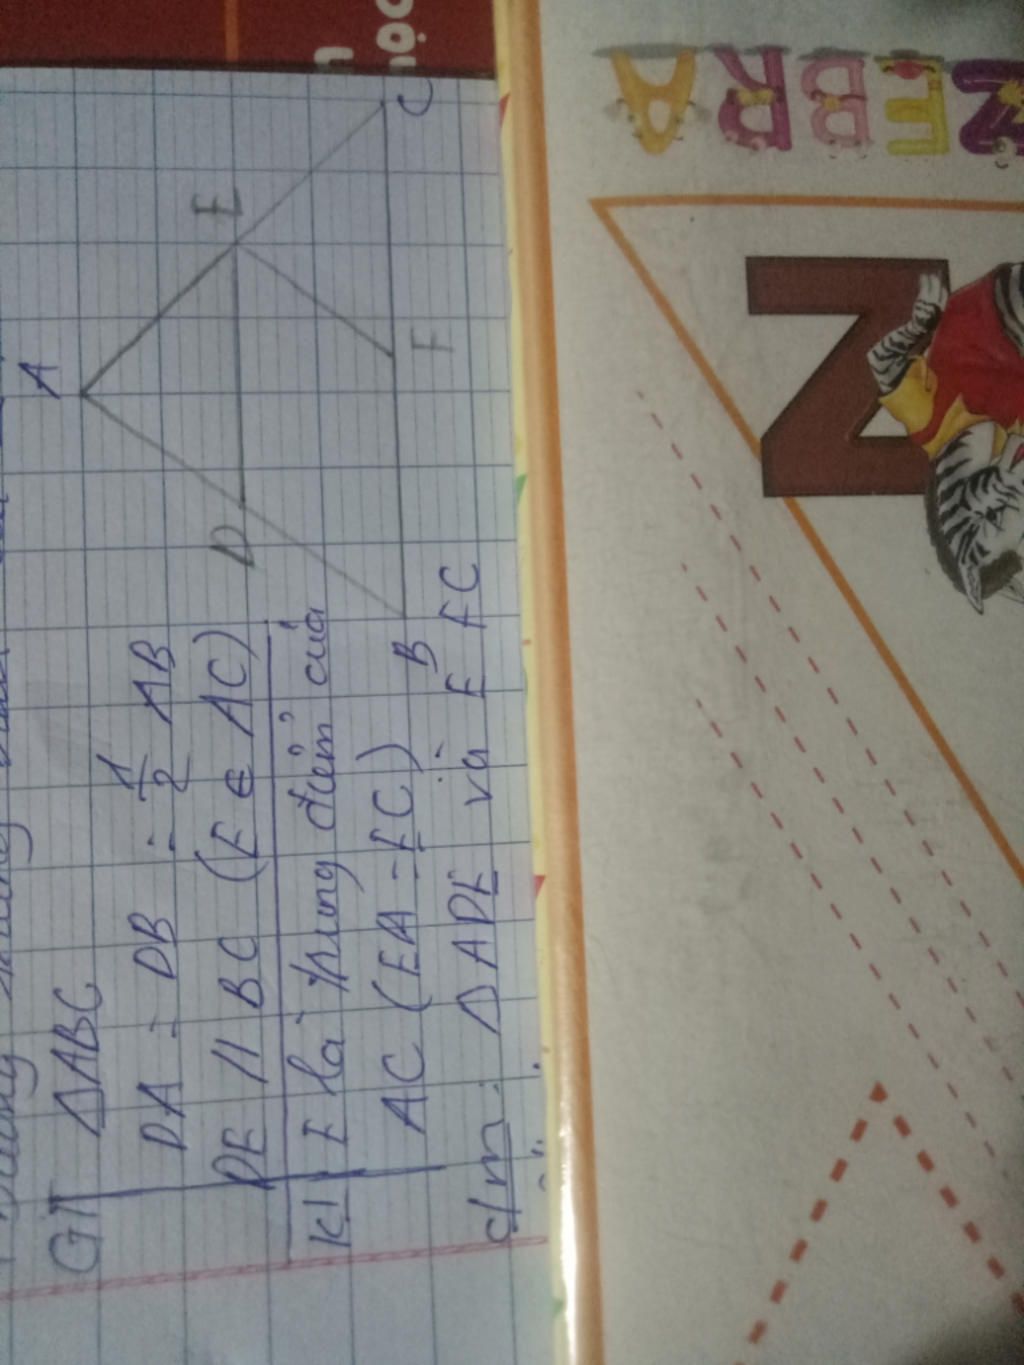 GT ΔABC
DA = DB = 1/2 AB
DE // BC (E ∈ AC)
KL E là trung điểm của
AC (EA = EC)
c/m: ΔADE và E FC
A
D
E
B
F
C
ZEBRA
Z